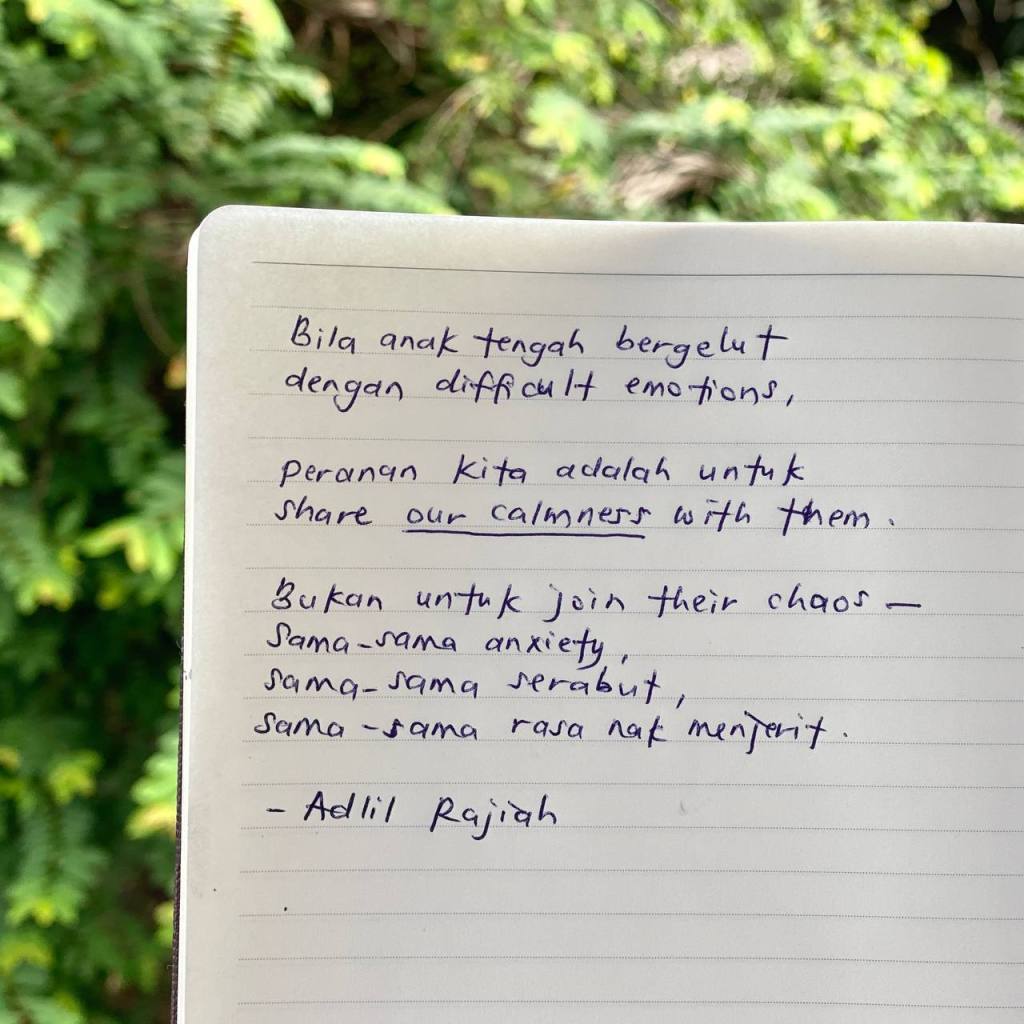 Bila anak tengah bergelut
dengan difficult emotions,
peranan kita adalah untuk
share our calmness with them.
Bukan untuk join their chaos —
sama-sama anxiety,
sama-sama serabut,
sama-sama rasa nak menjerit.
- Adlil Rajiah